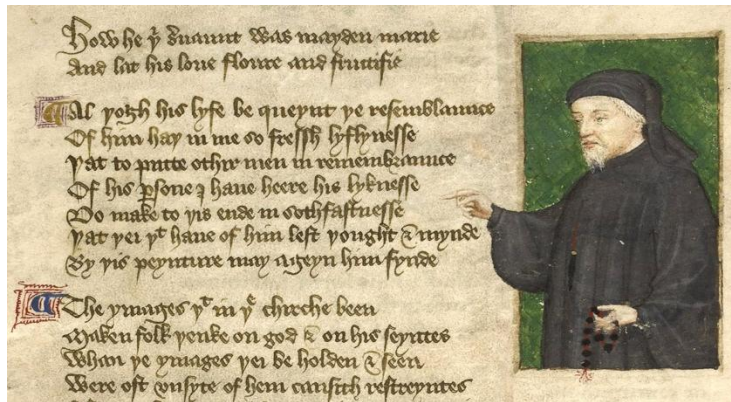 How he yͤ ẜuaunt was mayden marie
And lat his loue floure and fructifie
Al yogh his lyfe be queynt ye resemblaunce
Of him hay in me so fressh lyflynesse
Yat to putte othir men in remembraunce
Of his ꝑsone I haue heere his lyknesse
Do make to yis ende in sothfastnesse
Yat yei yͭ haue of him left yought & mynde
By yis peynture may ageyn him fynde
The ymages yͭ in yͤ chirche been
Maken folk yenke on god & on his seyntes
Whan ye ymages yei be holden & seen
Were oft vnsyte of hem causith restreyntes